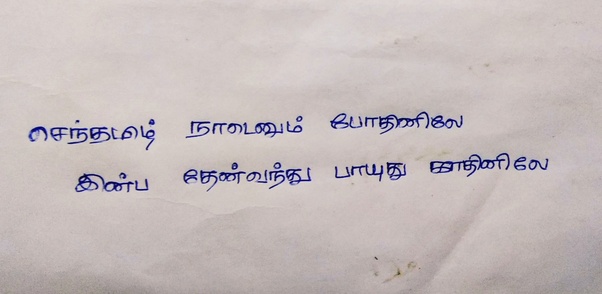 செந்தமிழ் நாடெனும் போதினிலே
இன்ப தேன்வந்து பாயுது காதினிலே